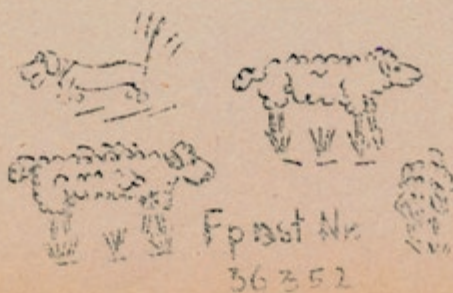 Fpost Nr.
36352